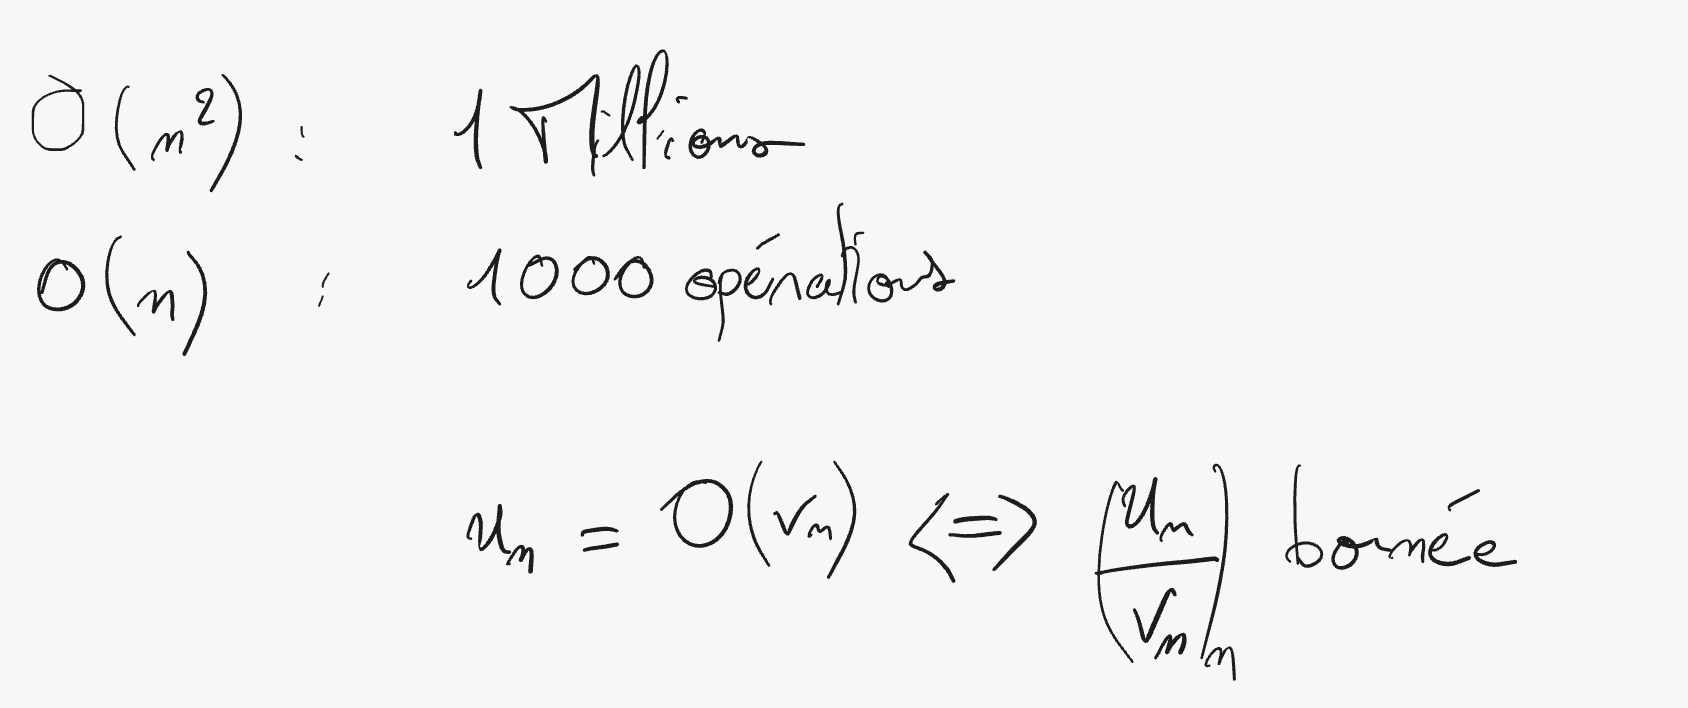 O(n²) : 1 Millions
O(n) : 1000 opérations
uₙ = O(vₙ) <=> (uₙ/vₙ)ₙ bornée